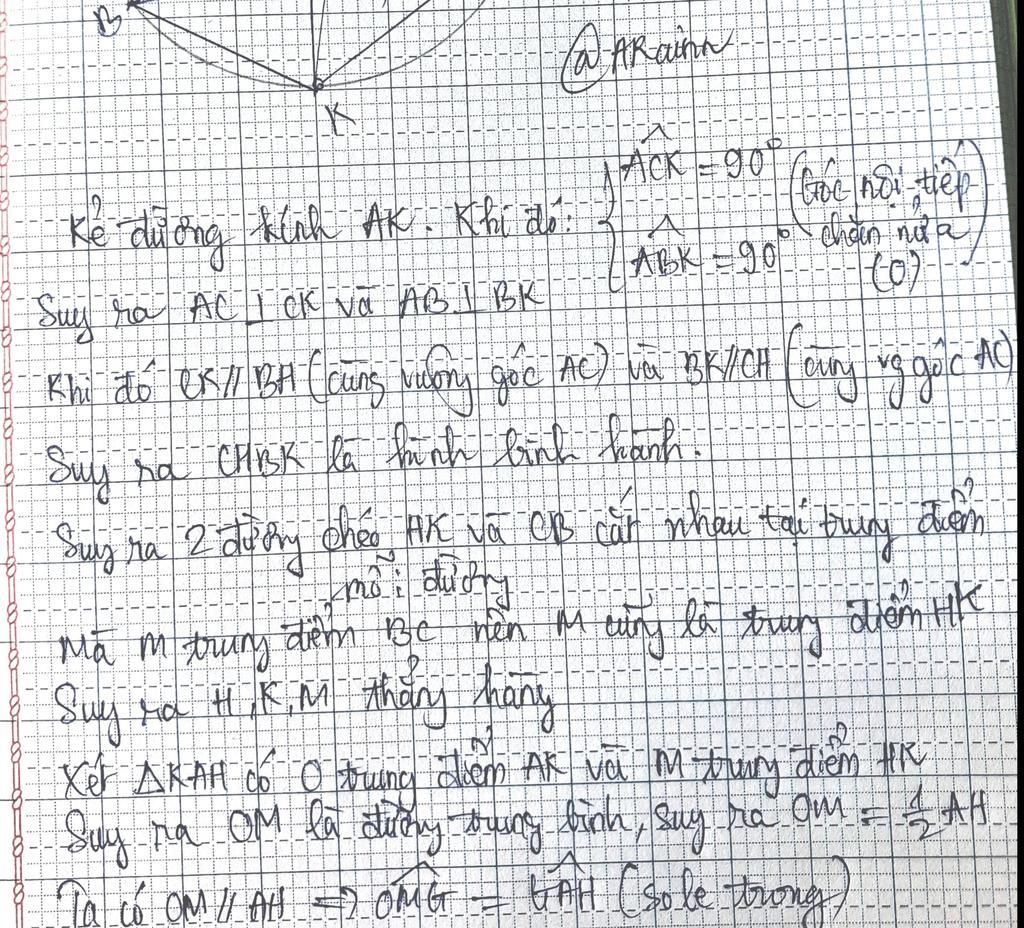 B
@ARainn
K
Kẻ đường kính AK. Khi đó: { ÂCK = 90° (Góc nội tiếp
ABK = 90° chắn nửa
(O))
Suy ra AC ⊥ CK và AB ⊥ BK
Khi đó CK // BH (cùng vuông góc AC) và BK // CH (cùng vg góc AC)
Suy ra CHBK là hình bình hành.
Suy ra 2 đường chéo HK và CB cắt nhau tại trung điểm
mỗi đường
Mà M trung điểm BC nên M cũng là trung điểm HK
Suy ra H, K, M thẳng hàng
Xét ΔKAH có O trung điểm AK và M trung điểm HK
Suy ra OM là đường trung bình, suy ra OM = 1/2 AH
Ta có OM // AH => OMG = GAH (so le trong)